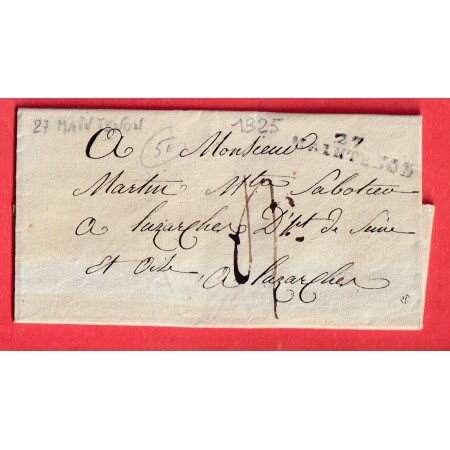 27 MAINTENON
1825
50
27
MAINTENON
A Monsieur
Martin Mtre Sabotier
a Luzarches Dpt de Seine
et Oise
a Luzarches